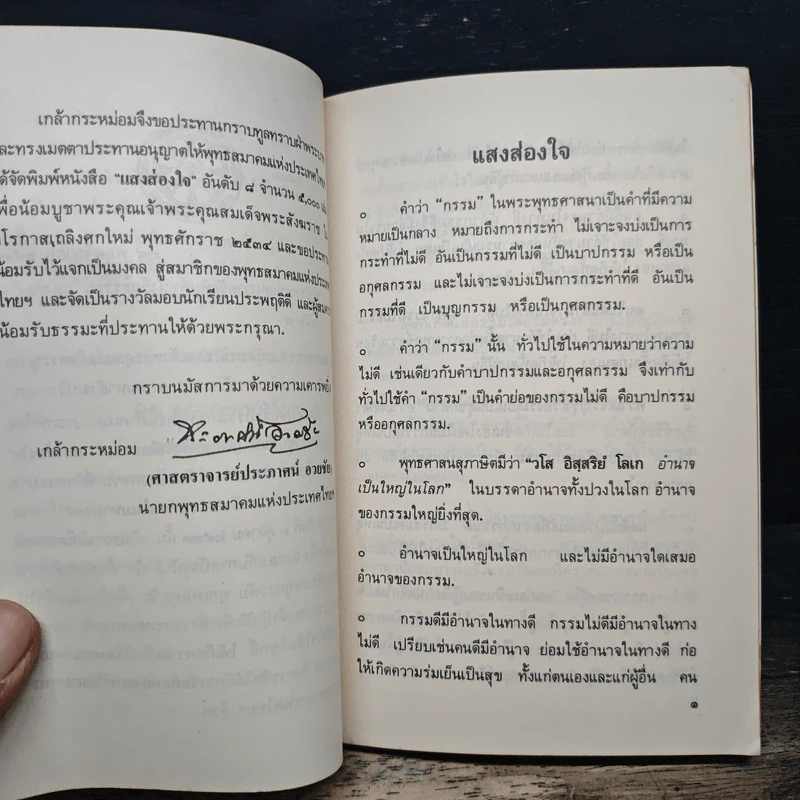 เกล้ากระหม่อมจึงขอประทานกราบทูลทราบฝ่าพระบาท
และทรงเมตตาประทานอนุญาตให้พุทธสมาคมแห่งประเทศไทยฯ
ได้จัดพิมพ์หนังสือ "แสงส่องใจ" อันดับ ๘ จำนวน ๕,๐๐๐
เพื่อน้อมบูชาพระคุณเจ้าพระคุณสมเด็จพระสังฆราช
โรกาสเถลิงศกใหม่ พุทธศักราช ๒๕๓๔ และขอประทาน
น้อมรับไว้แจกเป็นมงคล สู่สมาชิกของพุทธสมาคมแห่งประเทศ
ไทยฯ และจัดเป็นรางวัลมอบนักเรียนประพฤติดี และผู้
น้อมรับธรรมะที่ประทานให้ด้วยพระกรุณา.
กราบนมัสการมาด้วยความเคารพ
เกล้ากระหม่อม
(ศาสตราจารย์ประภาศน์ อวยชัย)
นายกพุทธสมาคมแห่งประเทศไทยฯ
แสงส่องใจ
๐ คำว่า "กรรม" ในพระพุทธศาสนาเป็นคำที่มีความ
หมายเป็นกลาง หมายถึงการกระทำ ไม่เจาะจงบ่งเป็นการ
กระทำที่ไม่ดี อันเป็นกรรมที่ไม่ดี เป็นบาปกรรม หรือเป็น
อกุศลกรรม และไม่เจาะจงบ่งเป็นการกระทำที่ดี อันเป็น
กรรมที่ดี เป็นบุญกรรม หรือเป็นกุศลกรรม.
๐ คำว่า "กรรม" นั้น ทั่วไปใช้ในความหมายว่าความ
ไม่ดี เช่นเดียวกับคำบาปกรรมและอกุศลกรรม จึงเท่ากับ
ทั่วไปใช้คำ "กรรม" เป็นคำย่อของกรรมไม่ดี คือบาปกรรม
หรืออกุศลกรรม.
๐ พุทธศาสนสุภาษิตมีว่า "วโส อิสฺสริยํ โลเก อำนาจ
เป็นใหญ่ในโลก" ในบรรดาอำนาจทั้งปวงในโลก อำนาจ
ของกรรมใหญ่ยิ่งที่สุด.
๐ อำนาจเป็นใหญ่ในโลก และไม่มีอำนาจใดเสมอ
อำนาจของกรรม.
๐ กรรมดีมีอำนาจในทางดี กรรมไม่ดีมีอำนาจในทาง
ไม่ดี เปรียบเช่นคนดีมีอำนาจ ย่อมใช้อำนาจในทางดี ก่อ
ให้เกิดความร่มเย็นเป็นสุข ทั้งแก่ตนเองและแก่ผู้อื่น คน
๑